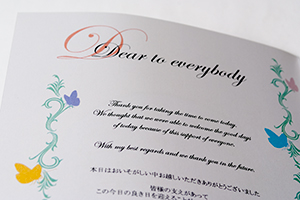 Dear to everybody
Thank you for taking the time to come today
We thought that we were able to welcome the good days
of today because of this support of everyone.
With my best regards and we thank you in the future.
本日はおいそがしい中お越しいただきありがとうございました
皆様の支えがあって
この今日の良き日を迎えること